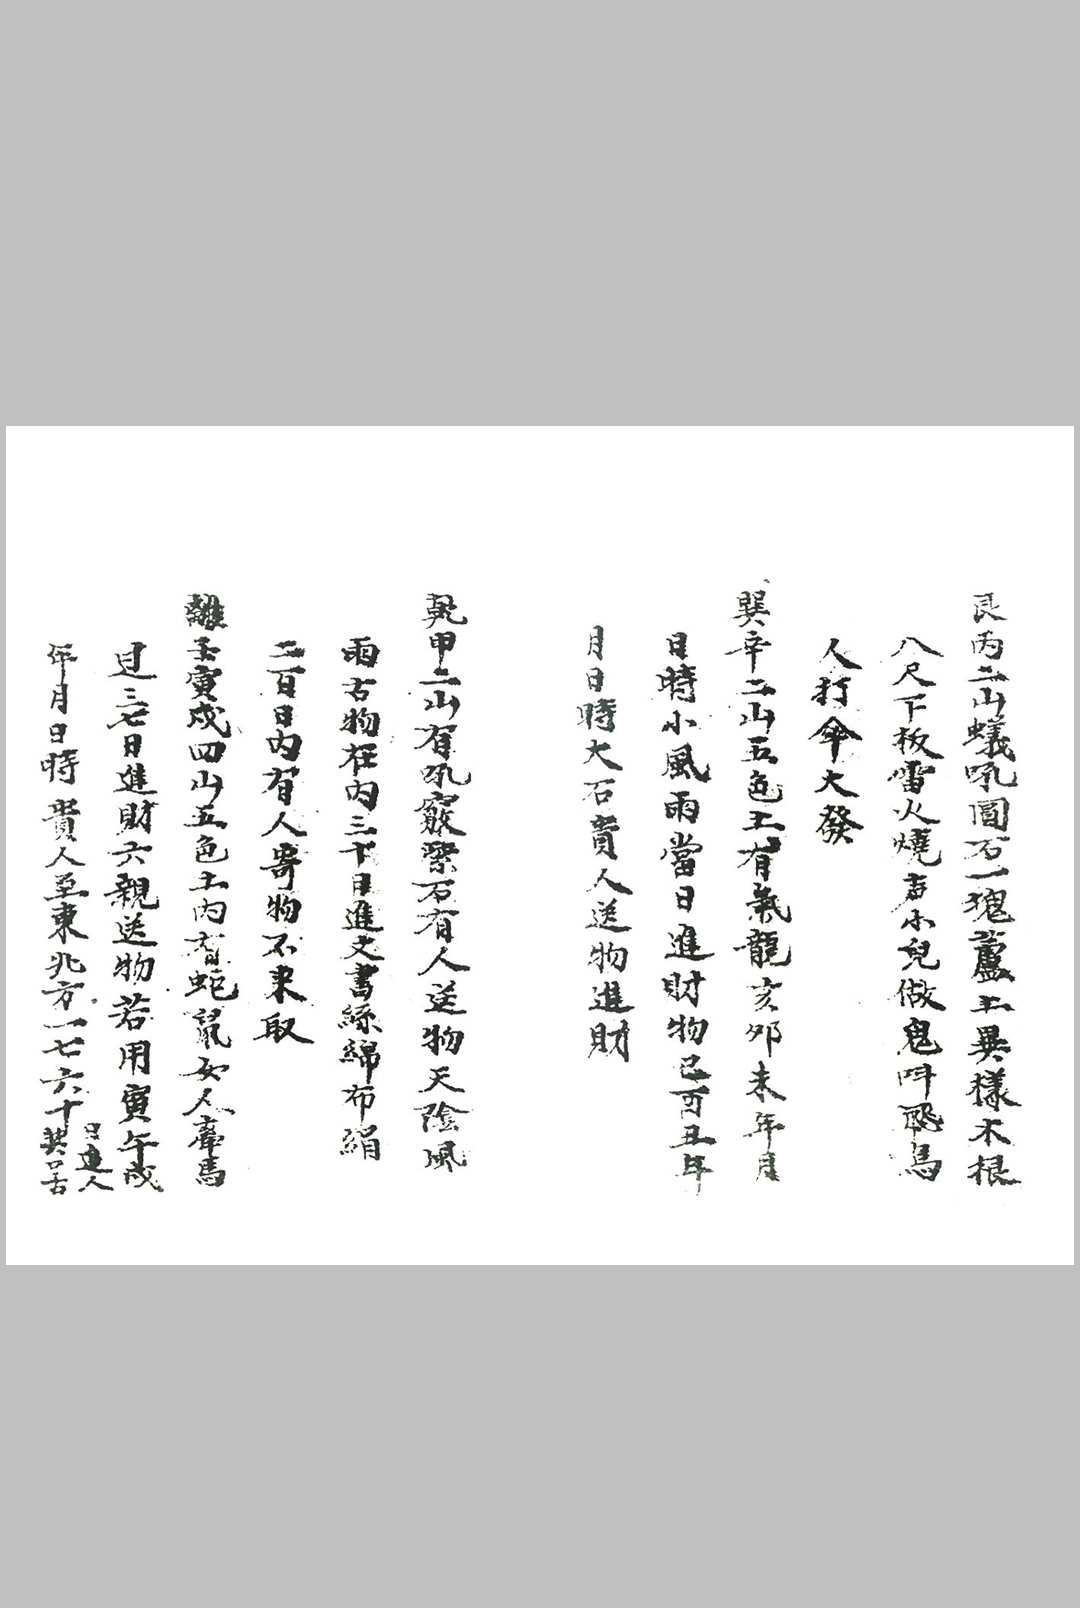 艮丙二山蟻吼圓石一塊蘆土異樣木根
八尺下板雷火燒声小兒做鬼呌騎馬
人打傘大發
巽辛二山五色土有氣龍亥夘未年月
日時小風雨當日進財物巳酉丑年
月日時大石貴人送物進財
乾甲二山有吼竅緊石有人送物天陰風
雨古物在内三下日進文書絲綿布絹
二百日内有人寄物不来取
離壬寅戍四山五色土内有蛇鼠女人牽馬
过三七日進財六親送物若用寅午戍
年月日時貴人至東北方一七六十
日進人